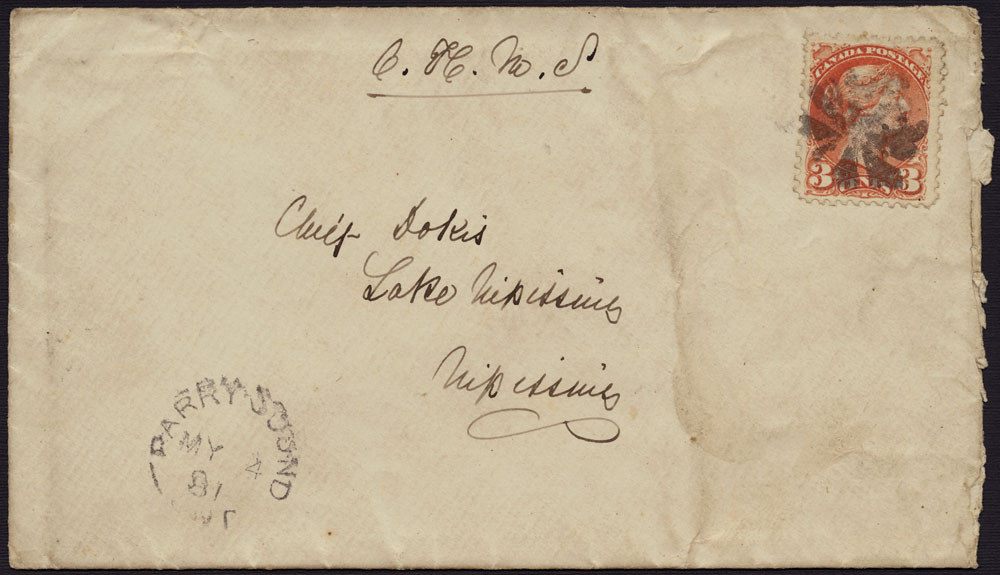 O. H. M. S
CANADA POSTAGE
3 CENTS 3
Chief Dokis
Lake Nipissing
Nipissing
PARRY SOUND
MY 4
81
ONT